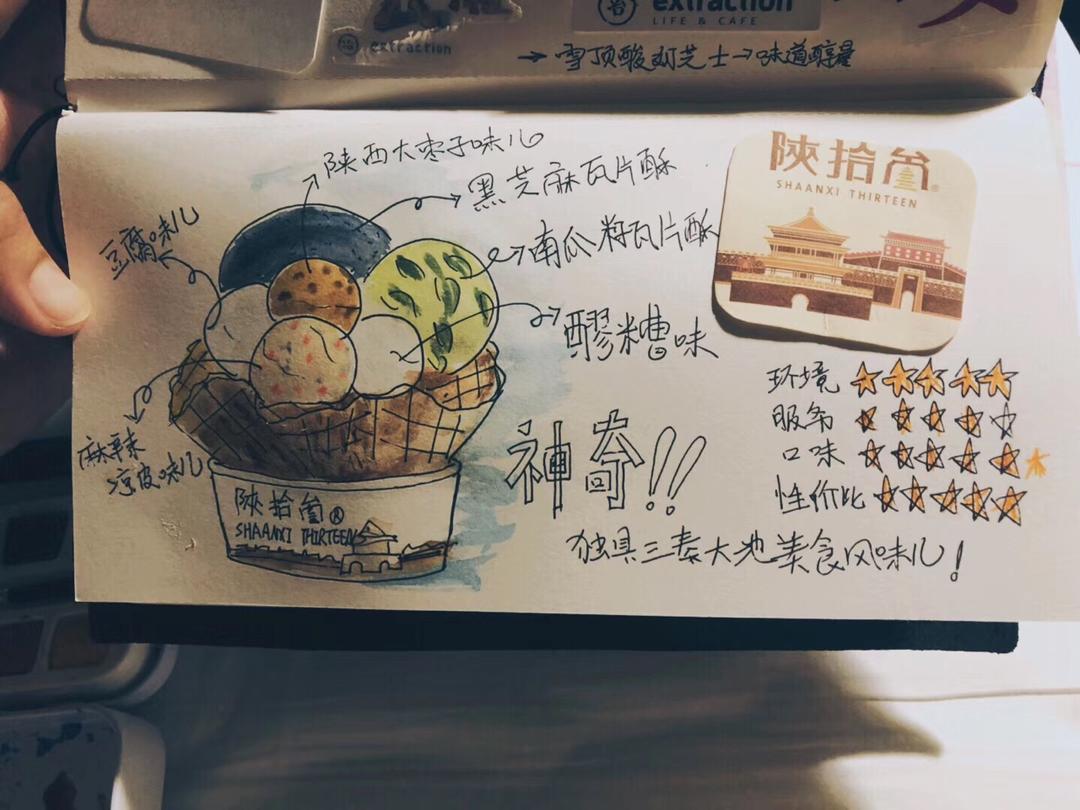 extraction
LIFE & CAFE
extraction
→雪顶酸奶芝士→味道醇
陕西大枣子味儿
黑芝麻瓦片酥
豆腐味儿
南瓜籽瓦片酥
醪糟味
麻辣
凉皮味儿
陕拾叁®
SHAANXI THIRTEEN
神奇!!
独具三秦大地美食风味儿!
陝拾叁®
SHAANXI THIRTEEN
环境 ★★★★★
服务 ★★★★☆
口味 ★★★★★★
性价比 ★★★★★